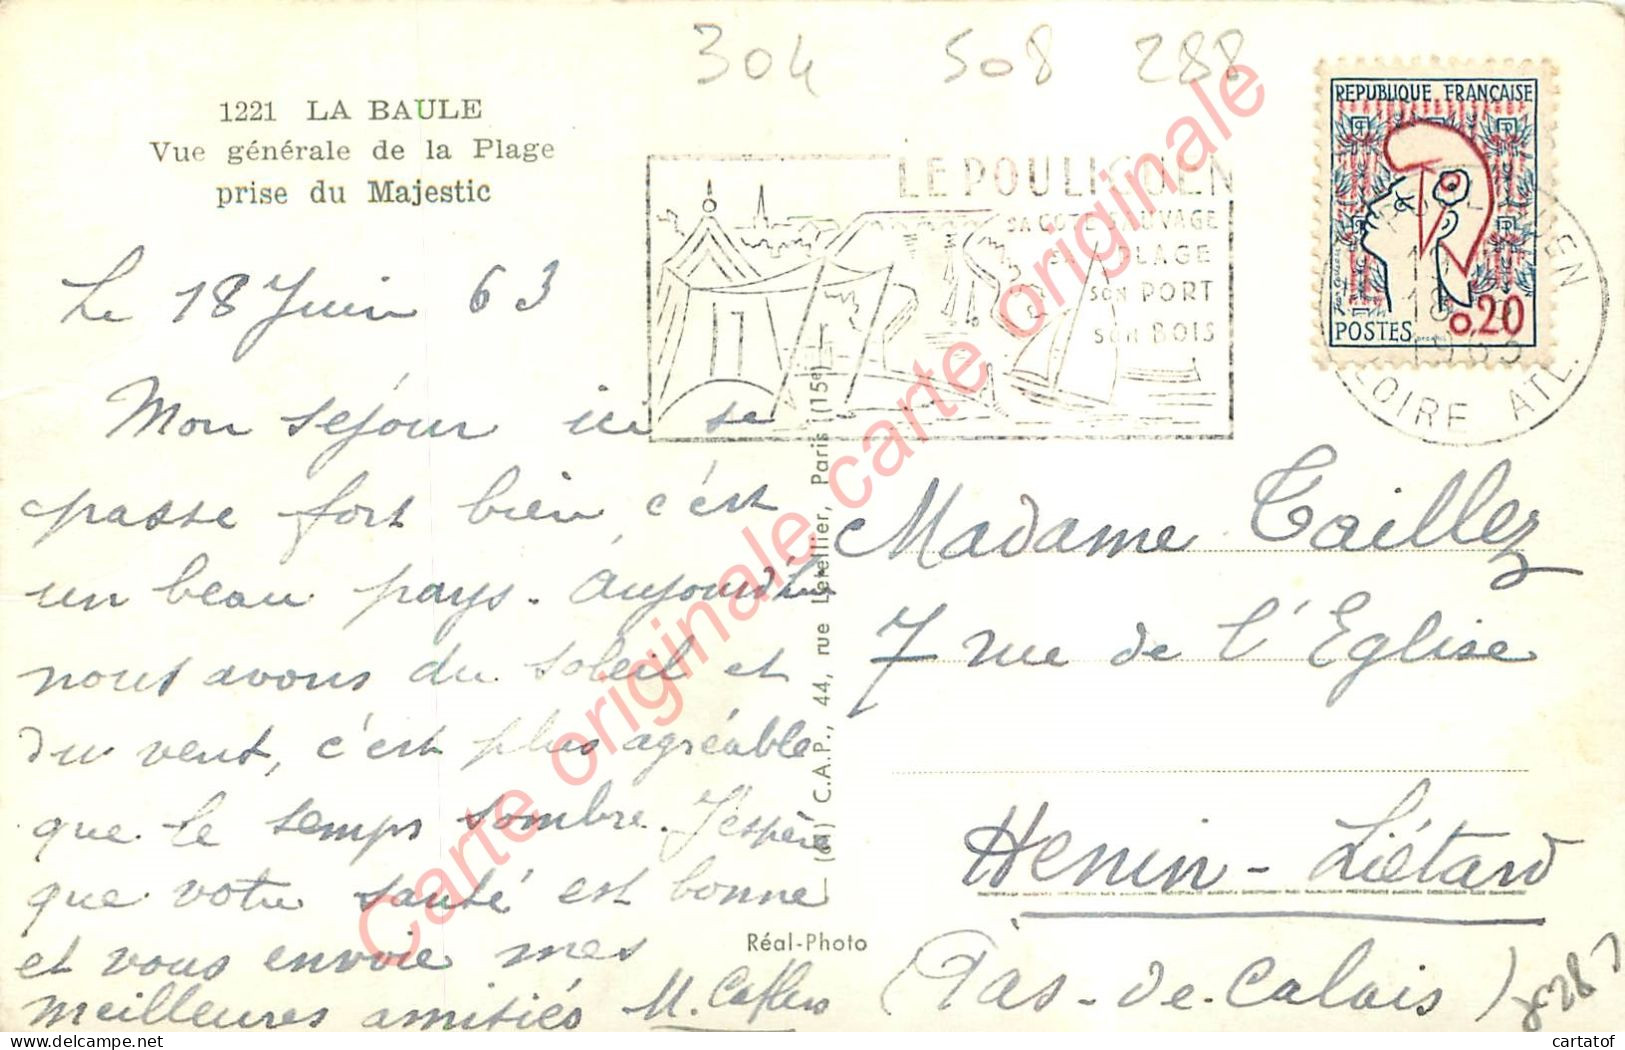 304 508 288
1221 LA BAULE
Vue générale de la Plage
prise du Majestic
Le 18 Juin 63
Mon séjour ici se
passe fort bien c'est
un beau pays. Aujourd'hui
nous avons du soleil et
du vent, c'est plus agréable
que le temps sombre. J'espère
que votre santé est bonne
et vous envoie mes
meilleures amitiés M.
(64) C.A.P., 44, rue Letellier, Paris (15e)
Réal-Photo
LE POULIGUEN
SA COTE SAUVAGE
SA PLAGE
SON PORT
SON BOIS
REPUBLIQUE FRANÇAISE
POSTES 0,20
LOIRE ATL.
18
1963
Madame Taillez
7 rue de l'Eglise
Henin-Liétard
(Pas-de-Calais)
Carte originale carte originale carte originale
cartatof